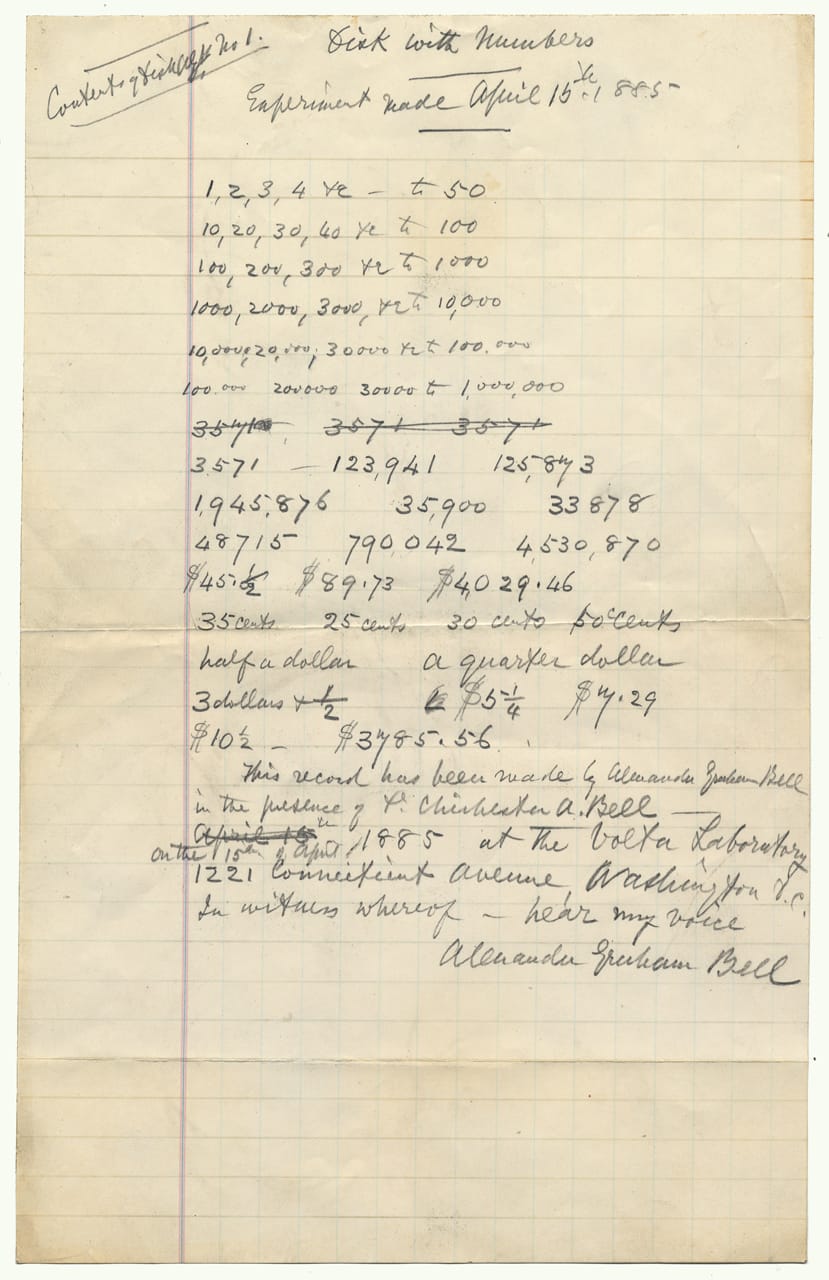 Contents of Disk No 1.
Disk with Numbers
Experiment made April 15th 1885
1, 2, 3, 4 &c — to 50
10, 20, 30, 40 &c to 100
100, 200, 300 &c to 1000
1000, 2000, 3000, &c to 10,000
10,000, 20,000, 30000 &c to 100.000
100.000 200000 30000 to 1,000,000
3571 3571 3571
3571 — 123,941 125,873
1,945,876 35,900 33878
48715 790,042 4,530,870
$45.½ $89.73 $4,029.46
35 cents 25 cents 30 cents 50 cents
half a dollar a quarter dollar
3 dollars & ½ $5¼ $7.29
$10½ — $3785.56
This record has been made by Alexander Graham Bell
in the presence of Dr. Chichester A. Bell —
April 15th
on the 15th of April, 1885 at the Volta Laboratory
1221 Connecticut Avenue, Washington D.C.
In witness whereof — hear my voice
Alexander Graham Bell